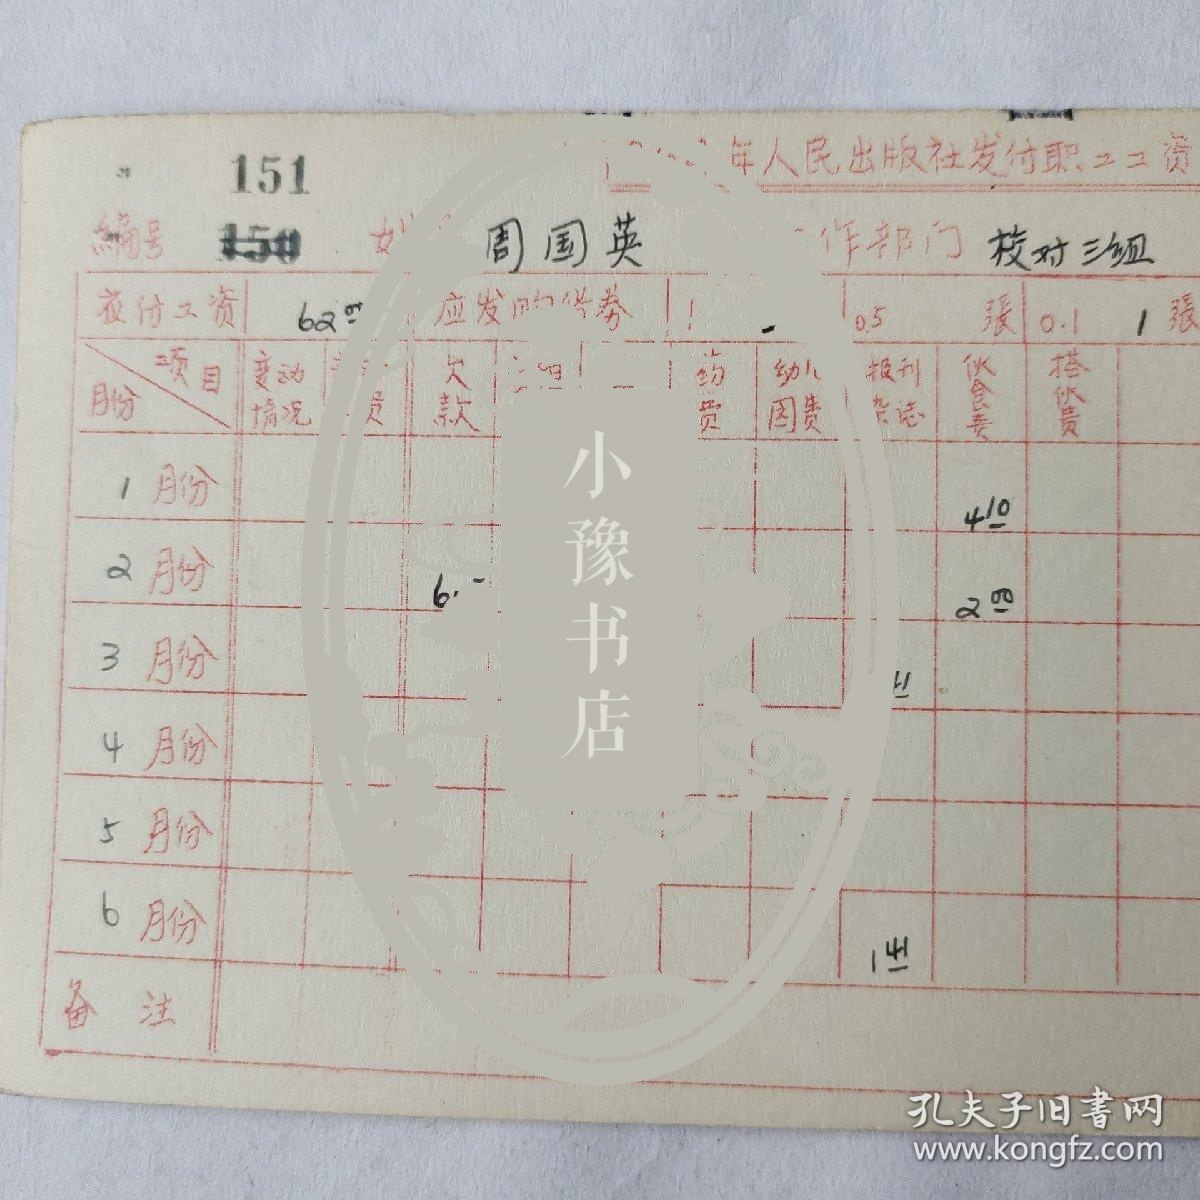 151
年人民出版社发付职工工资
编号 150 周国英 作部门 校对三组
应付工资 62.00 应发购 券 1 0.5 張 0.1 1 張
项目 变动 欠 药 幼儿 报刊 伙食费 搭伙费
月份 情况 款 费 园费 杂志
1 月份 4 10
2 月份 6.- 2 00
3 月份 41
4 月份
5 月份
6 月份 1 41
备注
小豫书店
孔夫子旧書网
www.kongfz.com